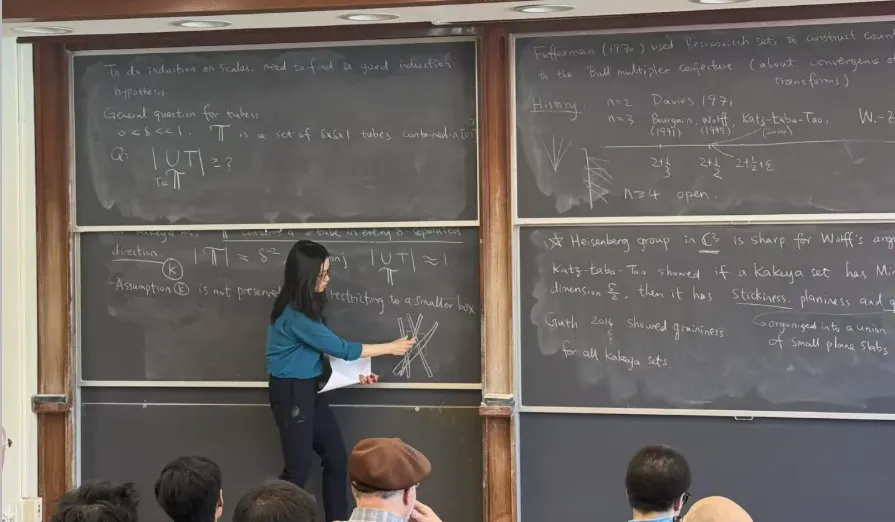 To do induction on scales, need to find a good induction
hypothesis.
General question for tubes:
0 < δ << 1. 𝕋 is a set of δxδx1 tubes contained in
Q: | ∪ T | ≥ ?
T∈𝕋
𝕋 contains a δ-tube in every δ-separated
direction. |𝕋| ≈ δ⁻² | ∪ T | ≈ 1
(k) 𝕋
- Assumption (k) is not restricting to a smaller box
Fefferman (1970) used Besicovitch sets to construct
to the Ball multiplier conjecture (about convergence of
transforms)
History n=2 Davies 1971
n=3 Bourgain, Wolff, Katz-Łaba-Tao, W.-Z
(1991) (1995) (2000)
2+1/3 2+1/2 2+1/2+ε
n≥4 open.
☆ Heisenberg group in ℂ³ is sharp for Wolff's
Katz-Łaba-Tao showed if a Kakeya set has
dimension 5/2, then it has stickiness, planiness and
Guth 2014 showed graininess
for all Kakeya sets.
organized into a union
of small plane slabs